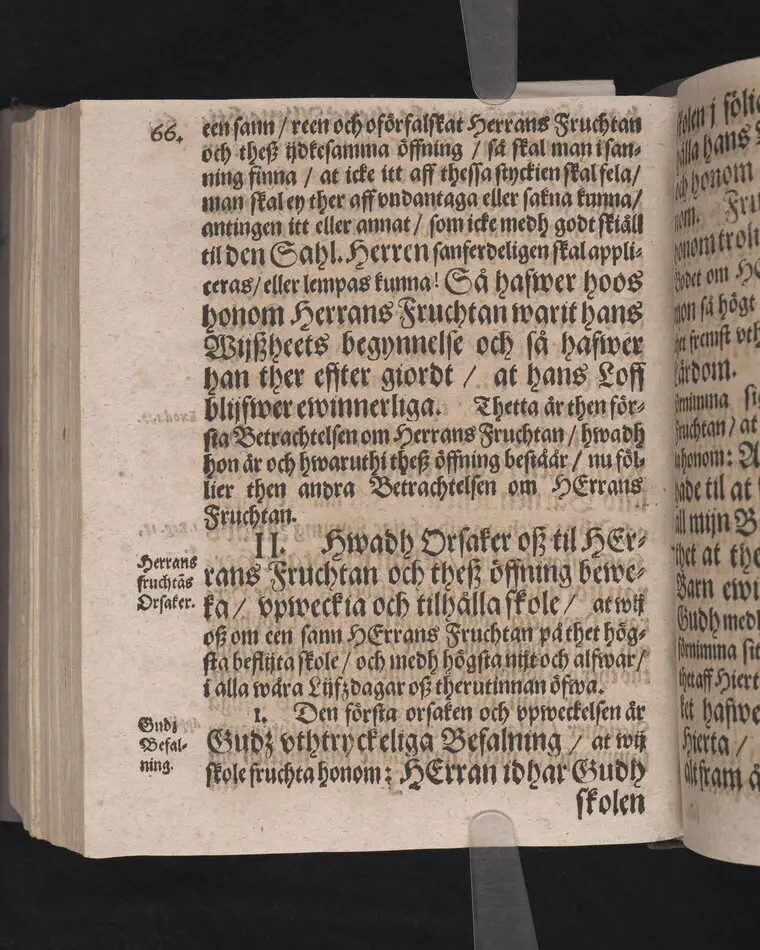 66.
een sann / reen och oförfalskat Herrans Fruchtan
och theß ijdkesamma öffning / så skal man i san-
ning finna / at icke itt aff thessa styckien skal fela /
man skal ey ther aff vndantaga eller sakna kunna /
antingen itt eller annat / som icke medh godt skiäll
til den Sahl. Herren sanferdeligen skal appli-
ceras / eller lempas kunna! Så hafwer hoos
honom Herrans Fruchtan warit hans
Wijßheets begynnelse och så hafwer
han ther effter giordt / at hans Loff
blijfwer ewinnerliga. Thetta är then för-
sta Betrachtelsen om Herrans Fruchtan / hwadh
hon är och hwaruthi theß öffning bestäär / nu föl-
lier then andra Betrachtelsen om HErrans
Fruchtan.
Herrans
fruchtās
Orsaker.
II. Hwadh Orsaker oß til HEr-
rans Fruchtan och theß öffning bewe-
ka / vpweckia och tilhålla skole / at wij
oß om een sann HErrans Fruchtan på thet hög-
sta beflijta skole / och medh högsta nijt och alfwar /
i alla wåra Lijfzdagar oß therutinnan öfwa.
Gudz
Befal-
ning.
1. Den första orsaken och vpweckelsen är
Gudz vthtryckeliga Befalning / at wij
skole fruchta honom: HErran idhar Gudh
skolen